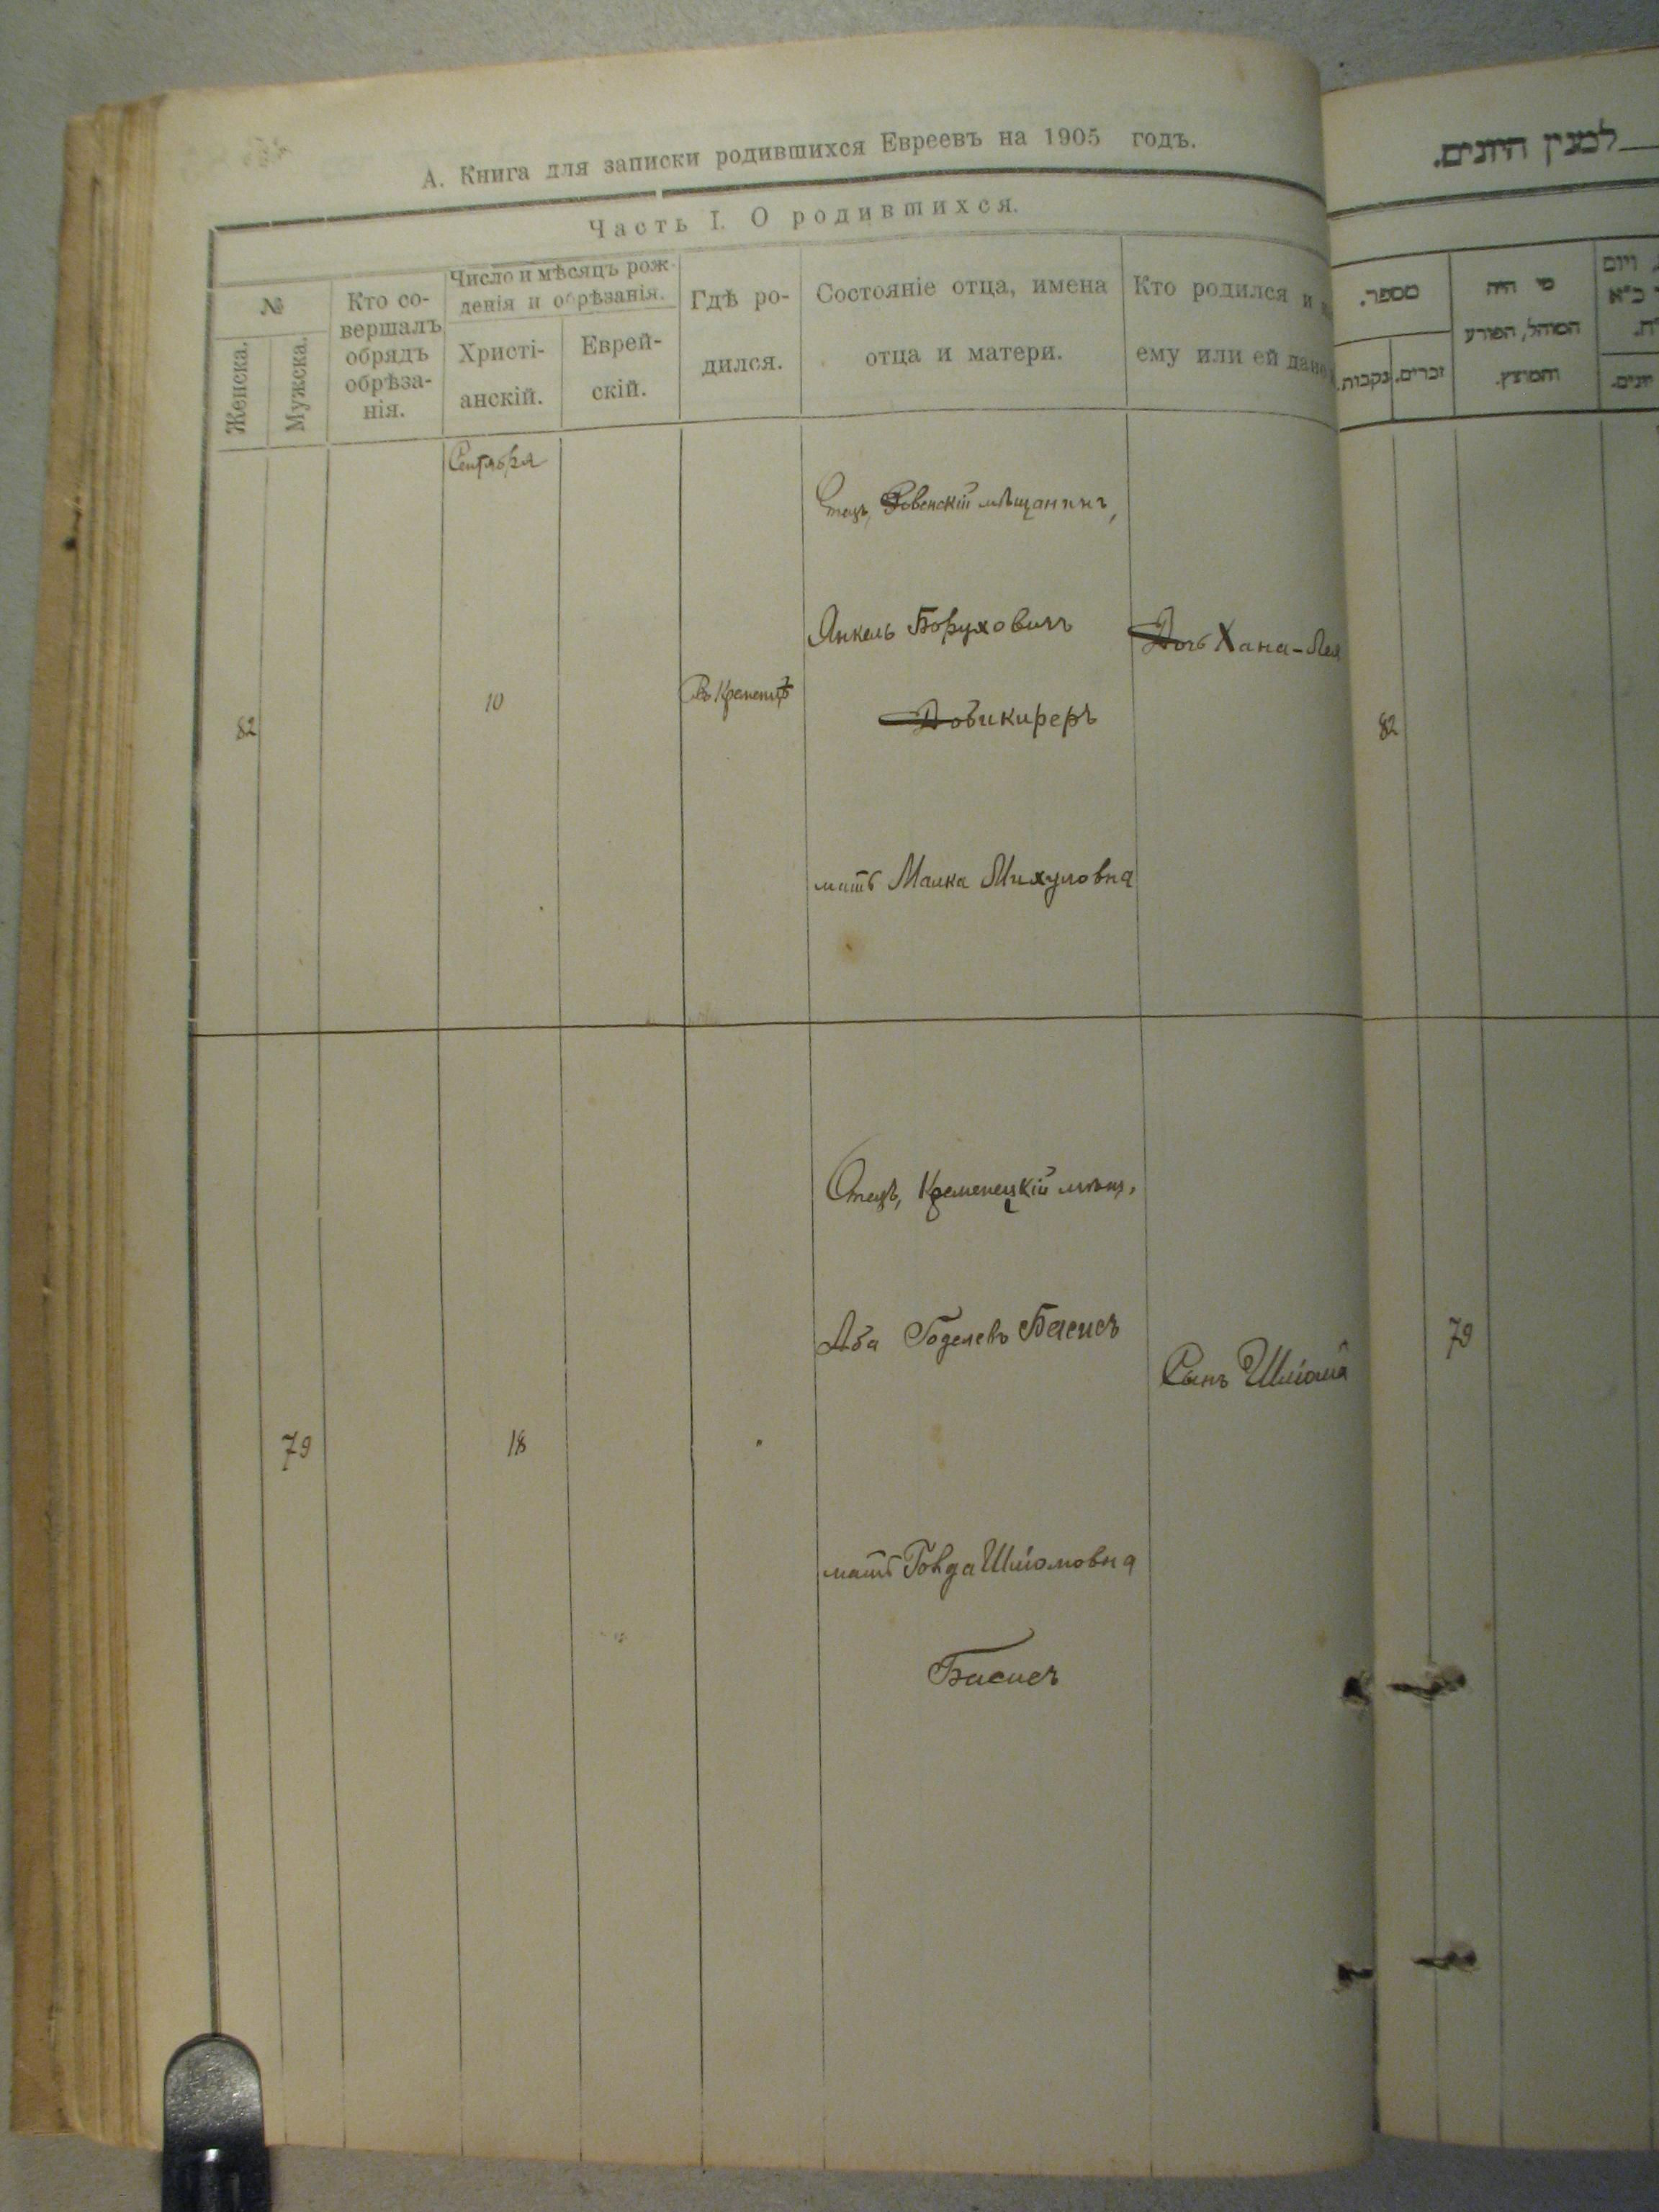 А. Книга для записки родившихся Евреевъ на 1905 годъ.
Часть I. О родившихся.
№
Женска.
Мужска.
Кто со-
вершалъ
обрядъ
обрѣза-
нія.
Число и мѣсяцъ рож-
денія и обрѣзанія.
Христі-
анскій.
Еврей-
скій.
Гдѣ ро-
дился.
Состояніе отца, имена
отца и матери.
Кто родился и
ему или ей дано
Сентября
82
10
Въ Кременцѣ
Отецъ, Ровенскій мѣщанинъ,
Янкель Боруховичъ
Довикиреръ
мать Малка Михуловна
Дочь Хана-Лея
79
18
Отецъ, Кременецкій мѣщ.
Аба Годелевъ Басисъ
мать Говда Шліомовна
Басисъ
Сынъ Шліома
למנין היונים.
מספר.
זכרים.
נקבות.
מי היה
המוהל, הפורע
והמוצץ.
ויום
כ״א
יונים.
82
79